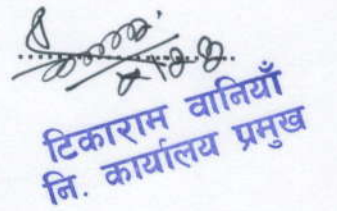 टिकाराम वानियाँ
नि. कार्यालय प्रमुख